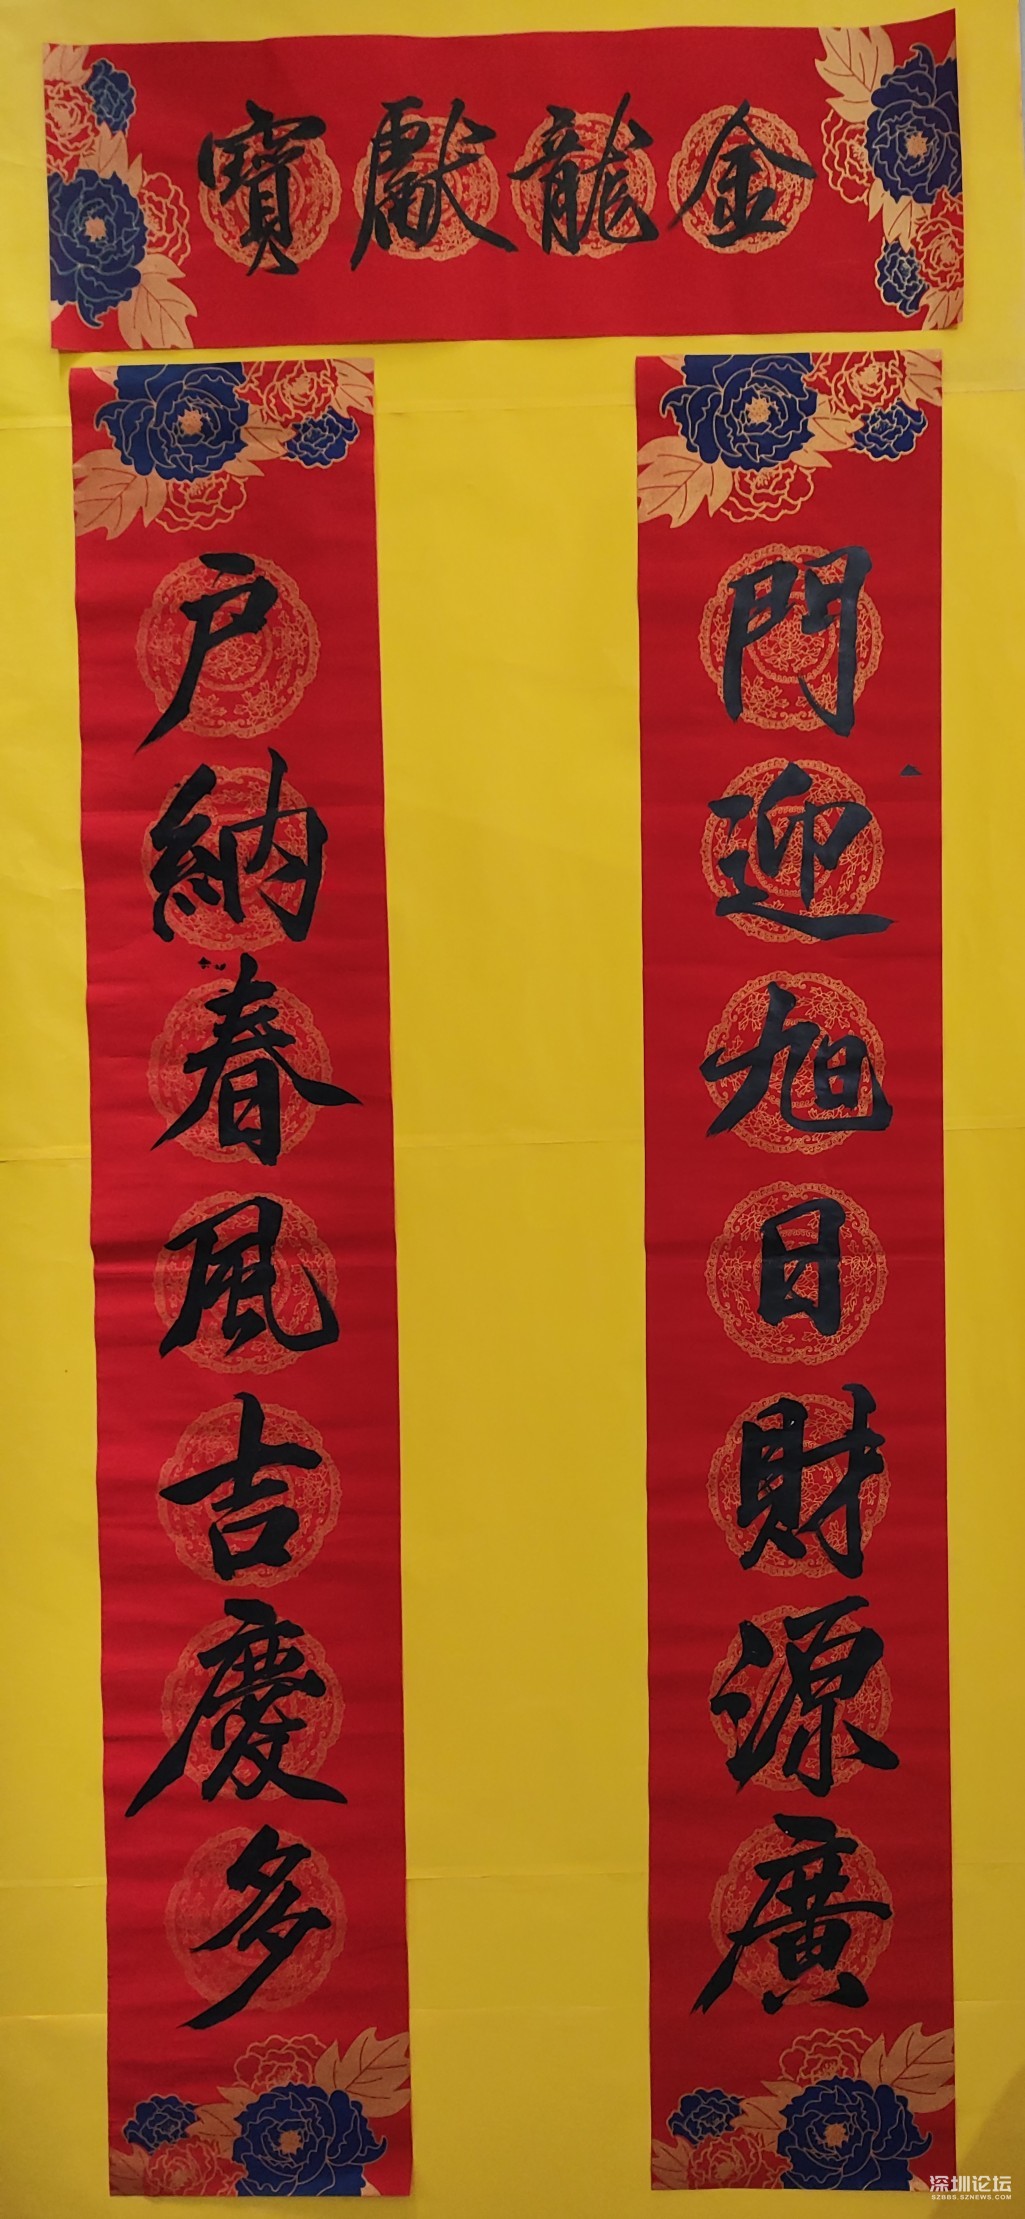 金龍獻寶
門迎旭日財源廣
戶納春風吉慶多
深圳论坛
SZBBS.SZNEWS.COM